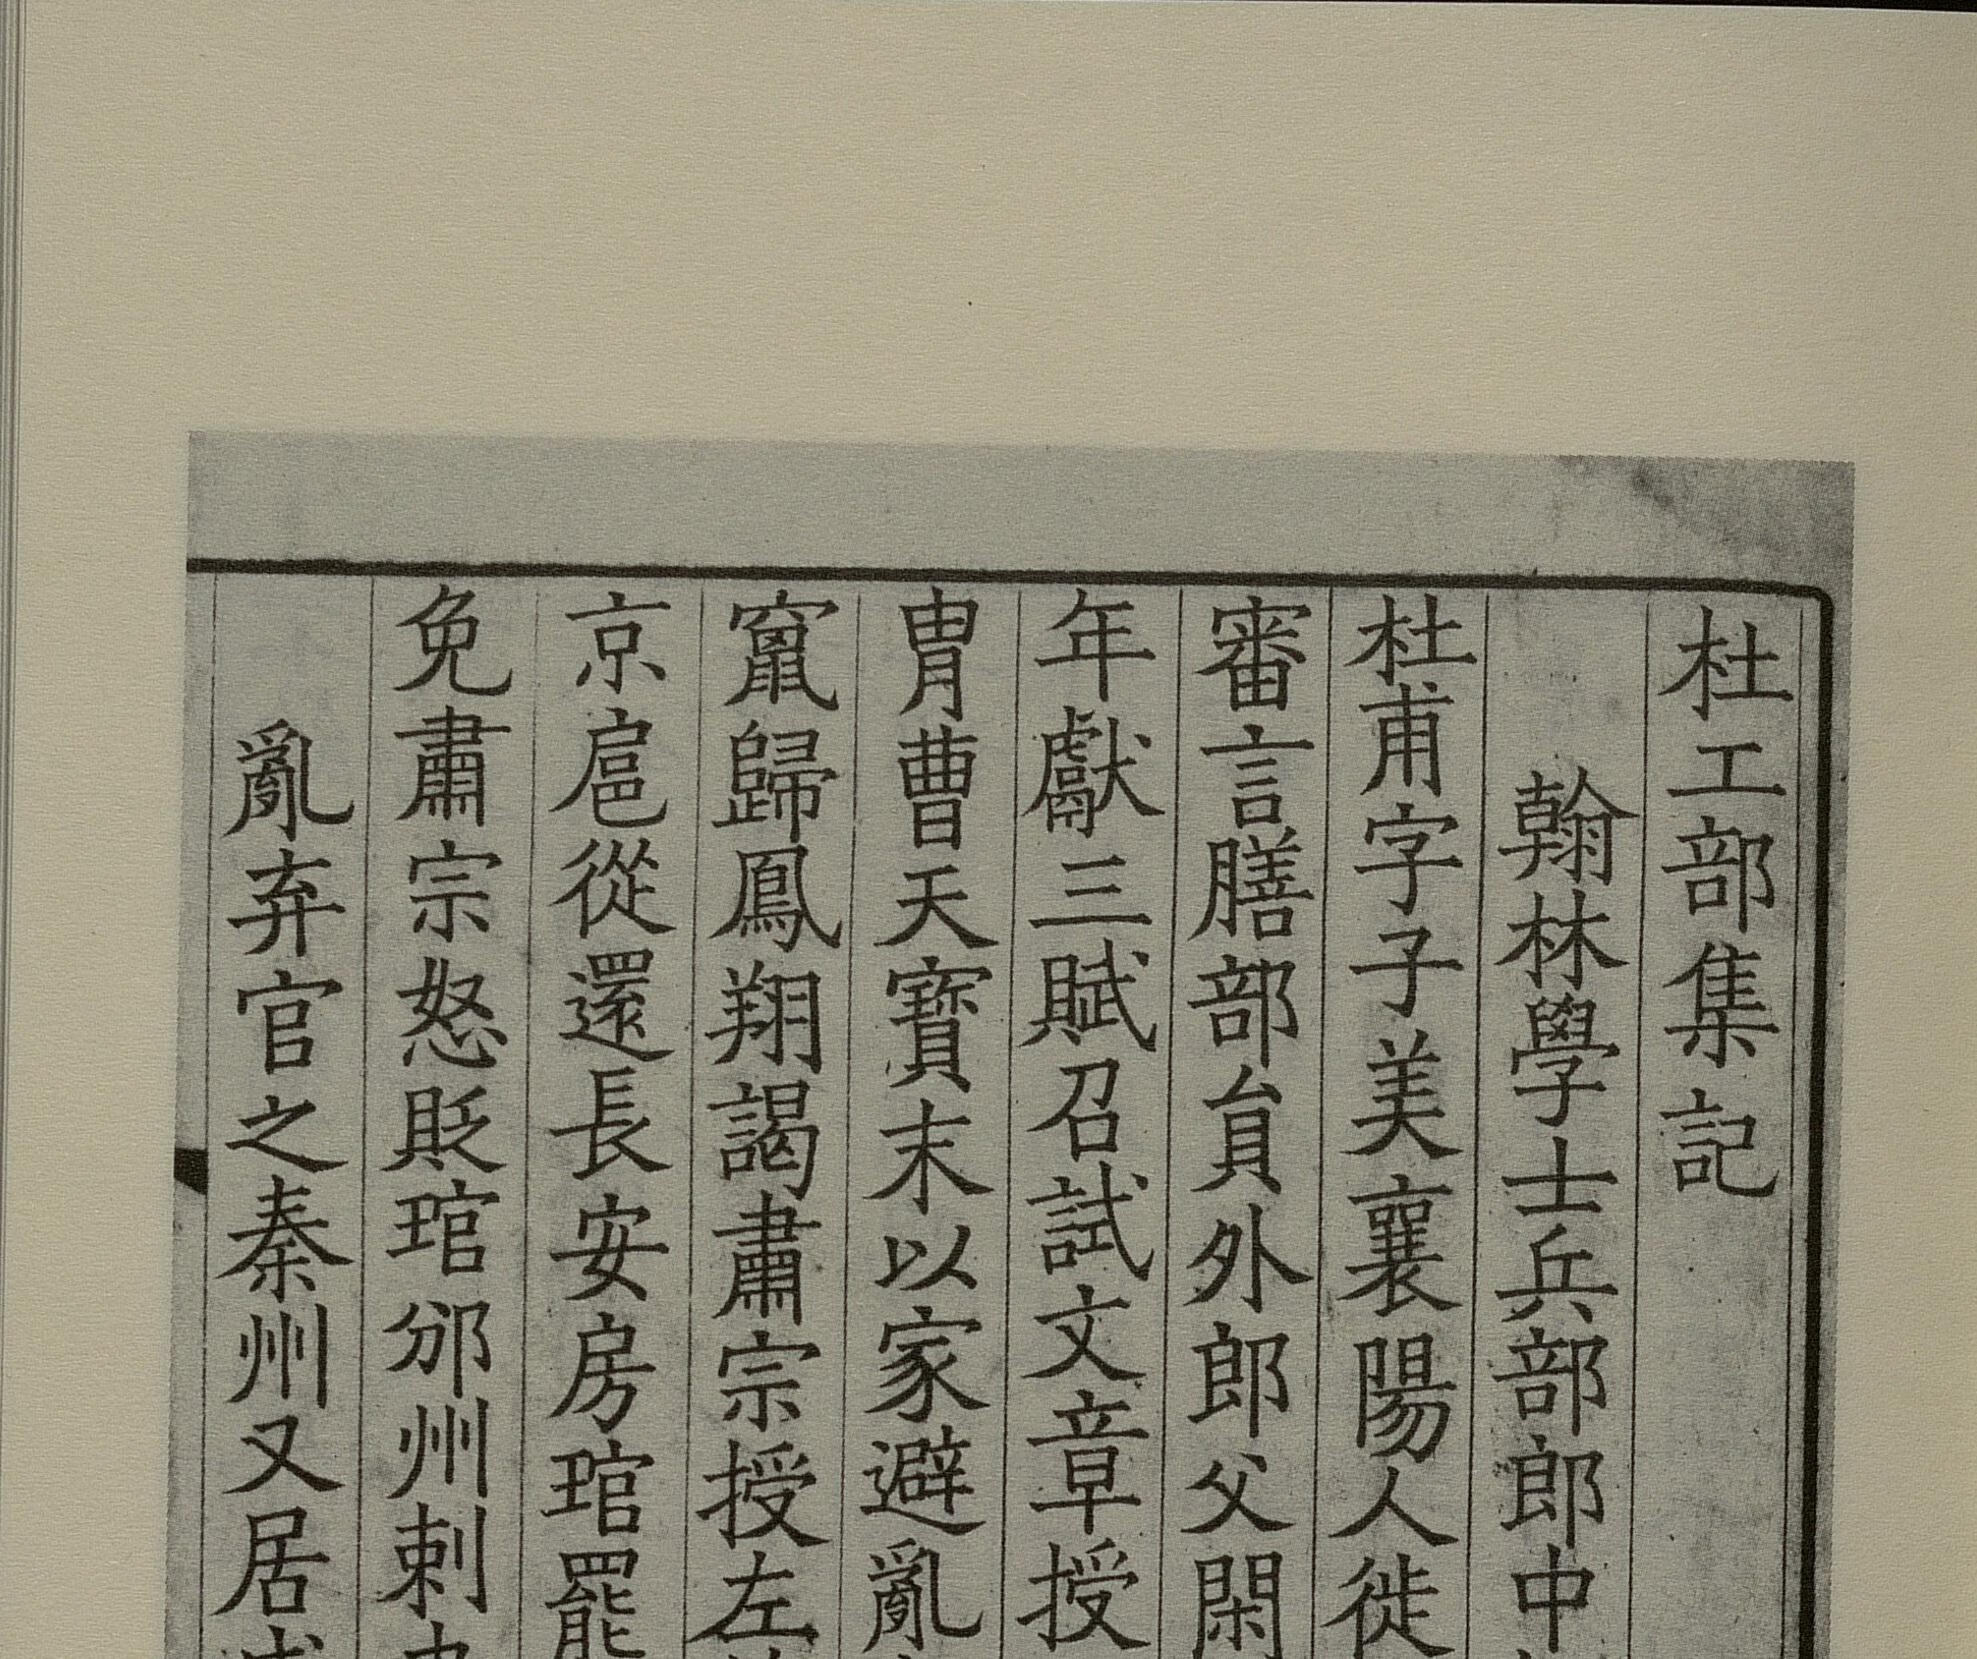 杜工部集記
翰林學士兵部郎中
杜甫字子美襄陽人徙
審言膳部貟外郎父閑
年獻三賦召試文章授
胄曹天寶末以家避亂
竄歸鳳翔謁肅宗授左
京扈從還長安房琯罷
免肅宗怒貶琯邠州刺
亂弃官之秦州又居